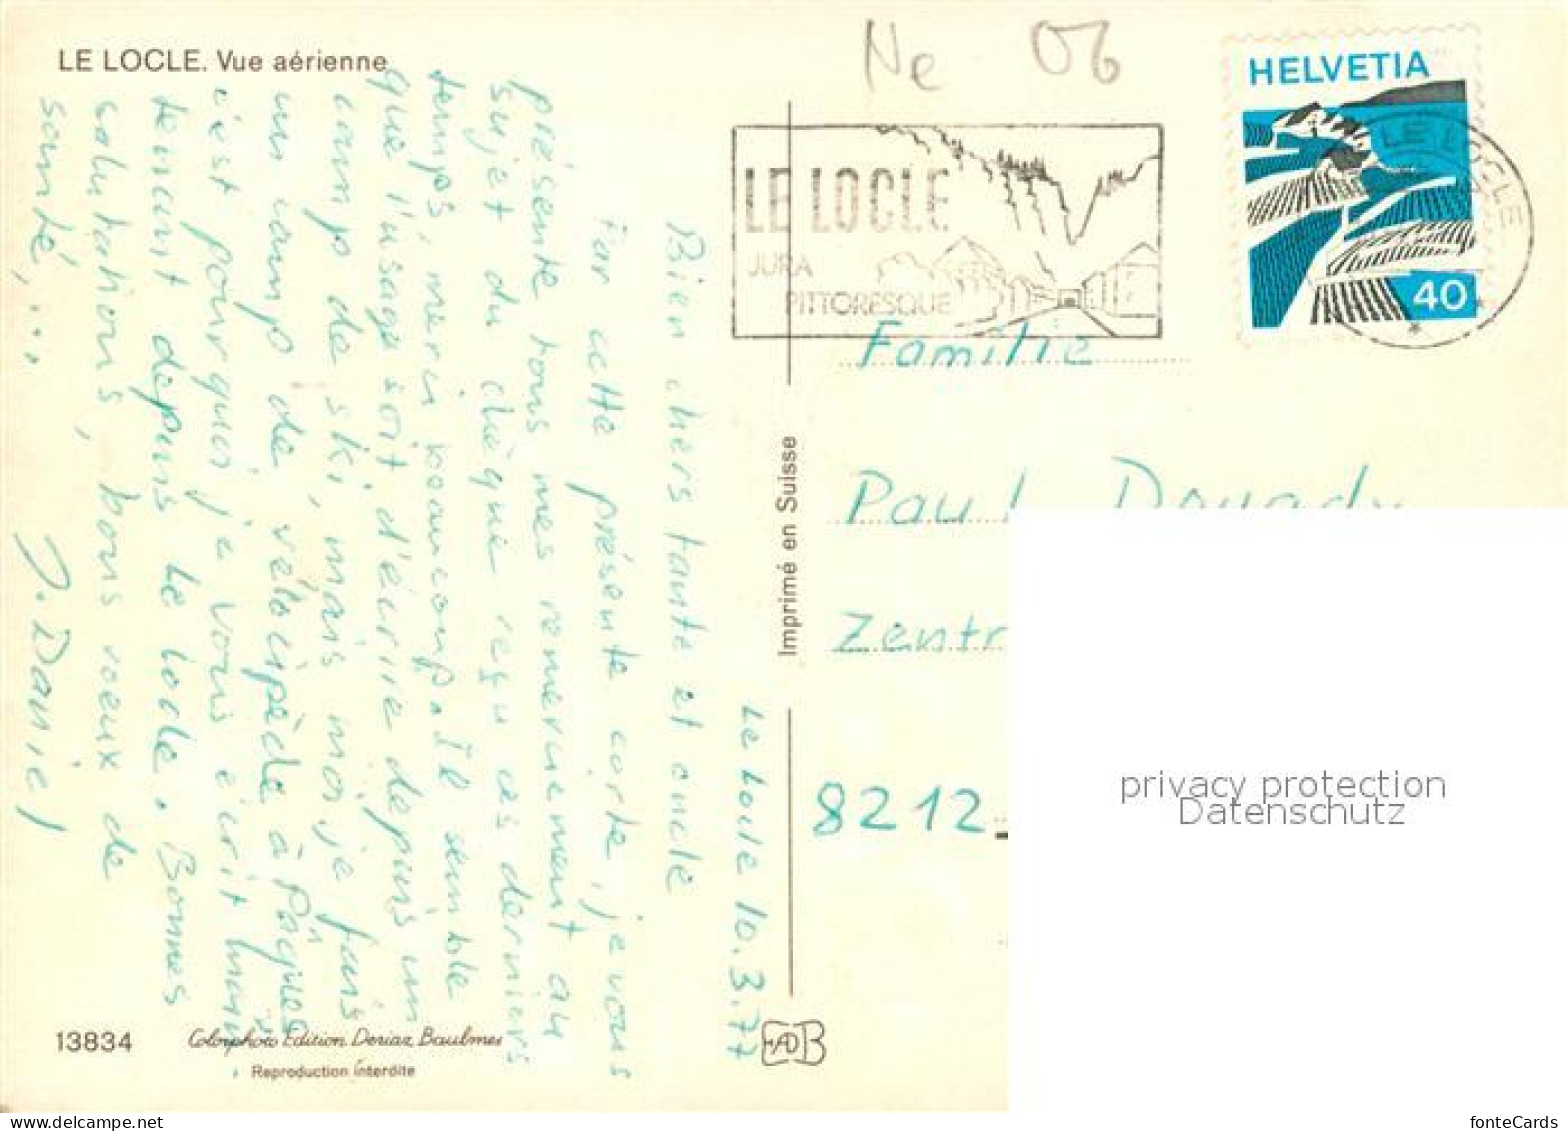 LE LOCLE. Vue aérienne
Ne 06
HELVETIA
40
LE LOCLE
LE LOCLE
JURA
PITTORESQUE
Le Locle 10.3.77
Bien chers tante et oncle
Par cette présente carte, je vous
présente tous mes remerciement au
sujet du chèque reçu ces derniers
temps, merci beaucoup. Il semble
que l'usage soit d'écrire depuis un
camp de ski, mais moi je fais
un camp de vélocipède à Pâques
c'est pourquoi je vous écrit main-
tenant depuis Le Locle. Bonnes
salutations, bons voeux de
santé, ...
J. Daniel
Familie
Paul
Zentr
8212
Imprimé en Suisse
13834
Colorphoto Edition Deriaz Baulmes
Reproduction interdite
privacy protection
Datenschutz
fonteCards